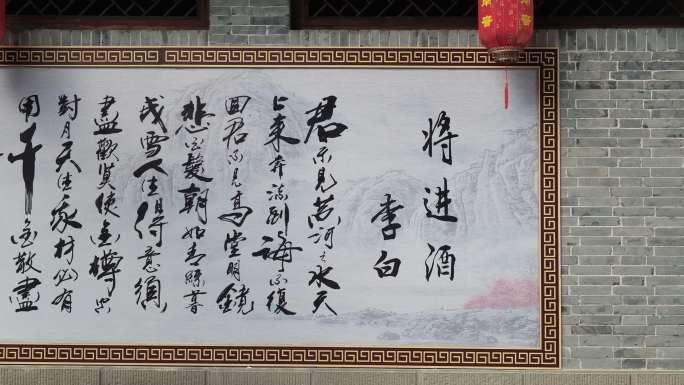 将进酒
李白
君不见黄河之水天
上来奔流到海不復
回君不见高堂明鏡
悲白髮朝如青絲暮
成雪人生得意須
盡歡莫使金樽空
對月天生我材必有
用千金散盡